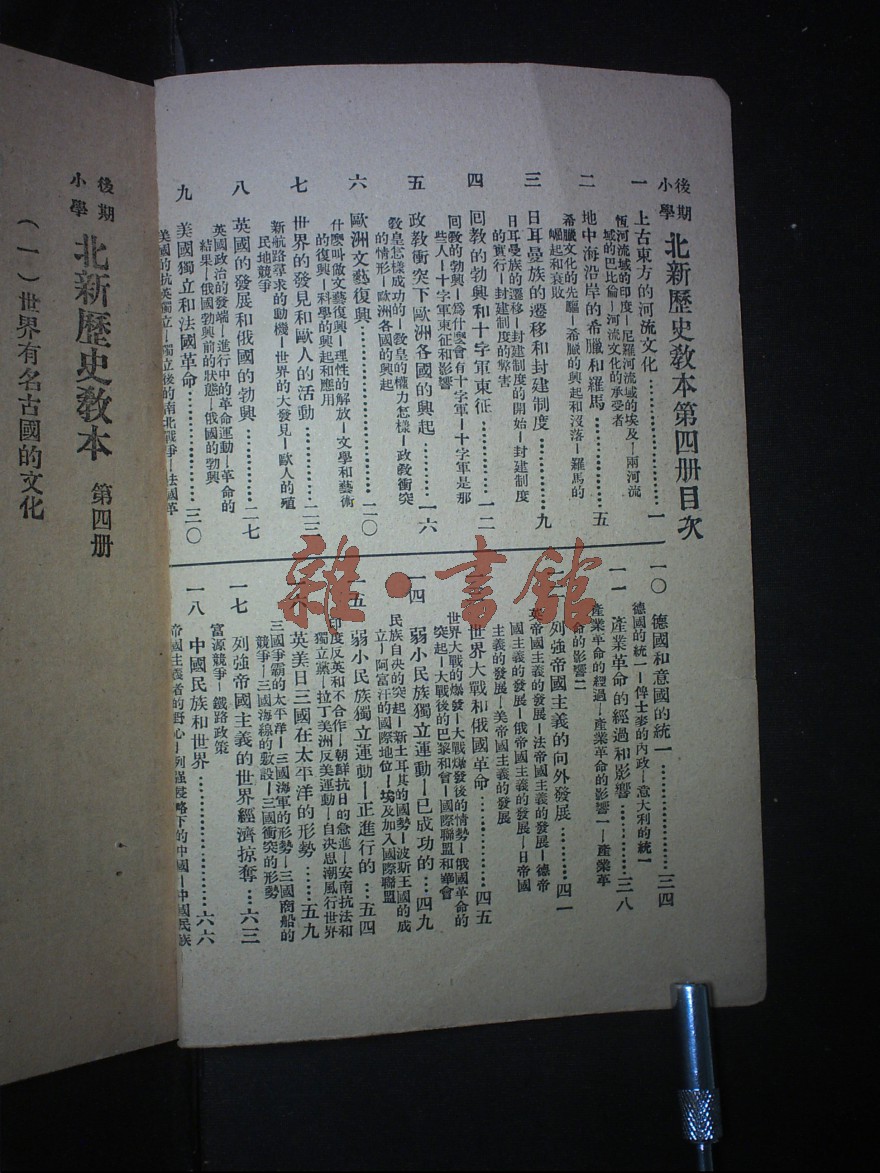 後期
小學
北新歷史教本第四册目次
一 上古東方的河流文化…………一
恆河流域的印度—尼羅河流域的埃及—兩河流
域的巴比倫—河流文化的承受者
二 地中海沿岸的希臘和羅馬…………五
希臘文化的先驅—希臘的興起和沒落—羅馬的
崛起和衰敗
三 日耳曼族的遷移和封建制度…………九
日耳曼族的遷移—封建制度的開始—封建制度
的實行—封建制度的弊害
四 回教的勃興和十字軍東征…………一二
回教的勃興—爲什麼會有十字軍—十字軍是那
些人—十字軍東征和影響
五 政教衝突下歐洲各國的興起…………一六
教皇怎樣成功的—教皇的權力怎樣—政教衝突
的情形—歐洲各國的興起
六 歐洲文藝復興…………二〇
什麼叫做文藝復興—理性的解放—文學和藝術
的復興—科學的興起和應用
七 世界的發見和歐人的活動…………二三
新航路尋求的動機—世界的大發見—歐人的殖
民地競爭
八 英國的發展和俄國的勃興…………二七
英國政治的發端—進行中的革命運動—革命的
結果—俄國勃興前的狀態—俄國的勃興
九 美國獨立和法國革命…………三〇
美國的抗英獨立—獨立後的南北戰爭—法國革
一〇 德國和意國的統一…………三四
德國的統一—俾士麥的內政—意大利的統一
一一 產業革命的經過和影響…………三八
產業革命的經過—產業革命的影響一—產業革
命的影響二
列強帝國主義的向外發展…………四一
英帝國主義的發展—法帝國主義的發展—德帝
國主義的發展—俄帝國主義的發展—日帝國
主義的發展—美帝國主義的發展
世界大戰和俄國革命…………四五
世界大戰的爆發—大戰爆發後的情勢—俄國革命的
突起—大戰後的巴黎和會—國際聯盟和華會
一四 弱小民族獨立運動—已成功的…四九
民族自決的突起—新土耳其的國勢—波斯王國的成
立—阿富汗的國際地位—埃及加入國際聯盟
一五 弱小民族獨立運動—正進行的…五四
印度反英和不合作—朝鮮抗日的急進—安南抗法和
獨立黨—拉丁美洲反美運動—自決思潮風行世界
一六 英美日三國在太平洋的形勢……五九
三國爭霸的太平洋—三國海軍的形勢—三國商船的
競爭—三國海線的敷設—三國衝突的形勢
一七 列強帝國主義的世界經濟掠奪…六三
富源競爭—鐵路政策
一八 中國民族和世界…………六六
帝國主義者的野心—列強侵略下的中國—中國民族
後期
小學
北新歷史教本 第四册
(一)世界有名古國的文化
雜·書館